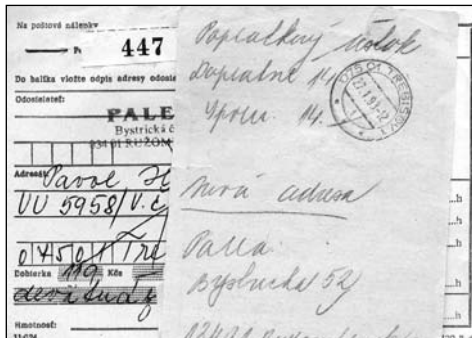 Na poštovú nálepku
447
Do balíka vložte odpis adresy odosie
Odosielateľ:
PALE
Bystrická č
034 01 RUŽOM
Adresát:
Pavol
VÚ 5958/
07501 Tre
Dobierka 119 Kčs
Hmotnosť:
Poplatkový ústok
Doplatné 14
Spolu 14.
075 01 TREBIŠOV 1
nová adresa
Palla
Bystrická 52
h
h
h
h